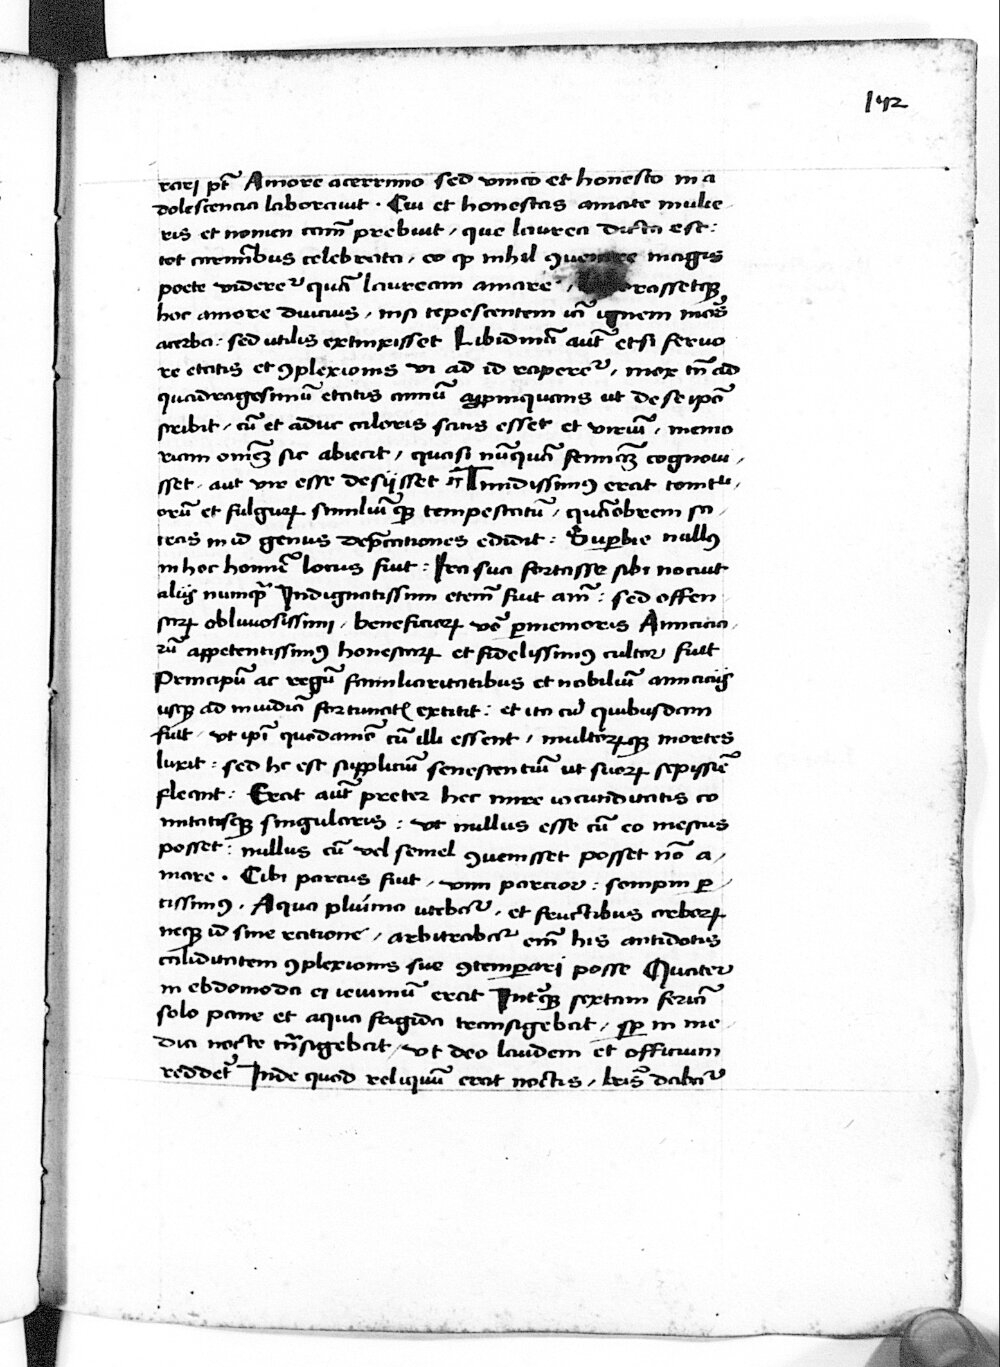 142
rari pt̄ Amore acerrimo sed vnico et honesto in a
dolescencia laborauit · Cui et honestas amate mulie
ris et nomen eam̄ prebuit, que laurea dicta est:
tot carmĩbus celebrata, eo ꝙ nihil ꝯuenire magis
poete videreᷣ quā lauream amare, rassetqꝫ
hoc amore diucius, nisi tepescentem iā ignem mors̄
acerba: sed utilis extinxisset Libidinē aut̄ etsi feruo
re etatis et ꝯplexionis vi ad id rapereᷣ, mox tn̄ ad
quadragesimū etatis annū appinquans ut de se ipē
scribit, cū et aduc caloris satis esset et viriū, memo
riam omēꝫ sic abiecit, quasi nūquā feminꝫ cognoui,
sset, aut vir esse desijsset Timidissimꝰ erat tonitu,
orū et fulguꝝ similiūqꝫ tempestatū, quāobrem sa,
teas in id genus dep̄cationes edidit: Supbie nullꝰ
in hoc homīe locus fuit: Ira sua fortasse sibi nocuit
alijs numqᷓ Indignatissimi etem̄ fuit am̄: sed offen
saꝝ obliuiosissimi, beneficioꝝ vō ꝑmemoris Amicicia,
rū appetentissimꝰ honestaꝝ et fidelissimꝰ cultor fuit
Principū ac regū familiaritatibus et nobiliū amicicijs
usqꝫ ad inuidiā fortunatꝰ extitit: et ita cū quibusdam
fuit, vt ipī quodamō cū illi essent, multoꝝqꝫ mortes
luxit: sed hc est suppliciū senescentiū ut suoꝝ sepissie
fleant: Erat aut̄ preter hec mire iocunditatis co
mitatisqꝫ singularis: vt nullus esse cū eo mestus
posset: nullus cū vel semel ꝯuenisset posset nō a,
mare · Cibi parcus fuit, vini parcior: sempin ꝑ
tissimꝰ · Aqua pluima utebaᷣ, et fructibus arboꝝ
neqꝫ id sine ratione, arbitrabaᷣ em̄ his antidotis
caliditatem ꝯplexionis sue ꝯtemꝑari posse Quater
in ebdomoda ei ieiuniū erat Intꝫqꝫ sextam feriā
solo pane et aqua frigida transigebat, sp̄ in me
dia nocte tn̄sigebat, vt deo laudem et officium
reddet̄ Inde quod reliquū erat noctis, lr̄is dabaᷣ